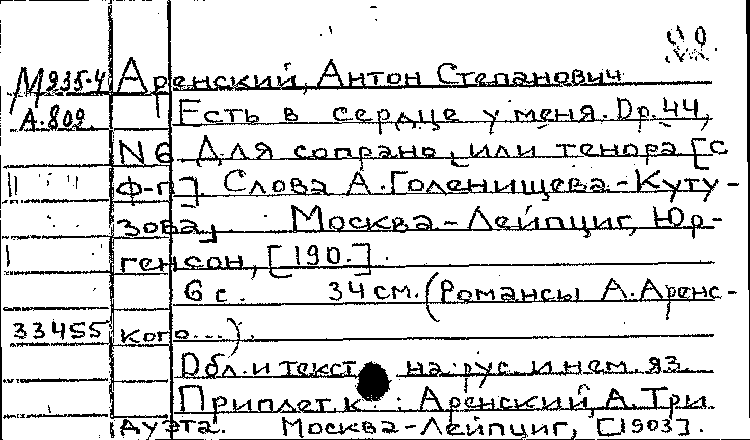 М935-4 Аренский, Антон Степанович
А.809. Есть в сердце у меня. Op.44,
N 6 Для сопрано, или тенора [с
ф-п]. Слова А.Голенищева-Куту-
зова, Москва-Лейпциг, Юр-
генсон, [190.].
6 с. 34 см. (Романсы А.Аренс-
33455 кого...).
Обл. и текст на рус. и нем. яз.
Приплет. к : Аренский, А. Три
дуэта. Москва-Лейпциг, [1903].